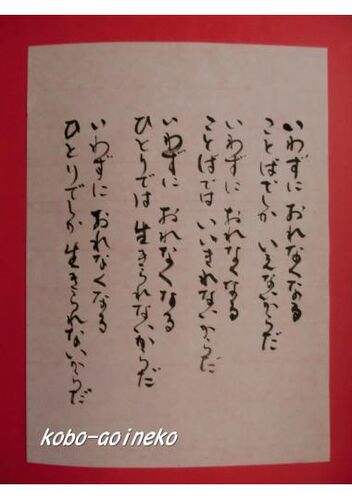 いわずに おれなくなる
ことばでしか いえないからだ
いわずに おれなくなる
ことばでは いいきれないからだ
いわずに おれなくなる
ひとりでは 生きられないからだ
いわずに おれなくなる
ひとりでしか 生きられないからだ
kobo-goineko